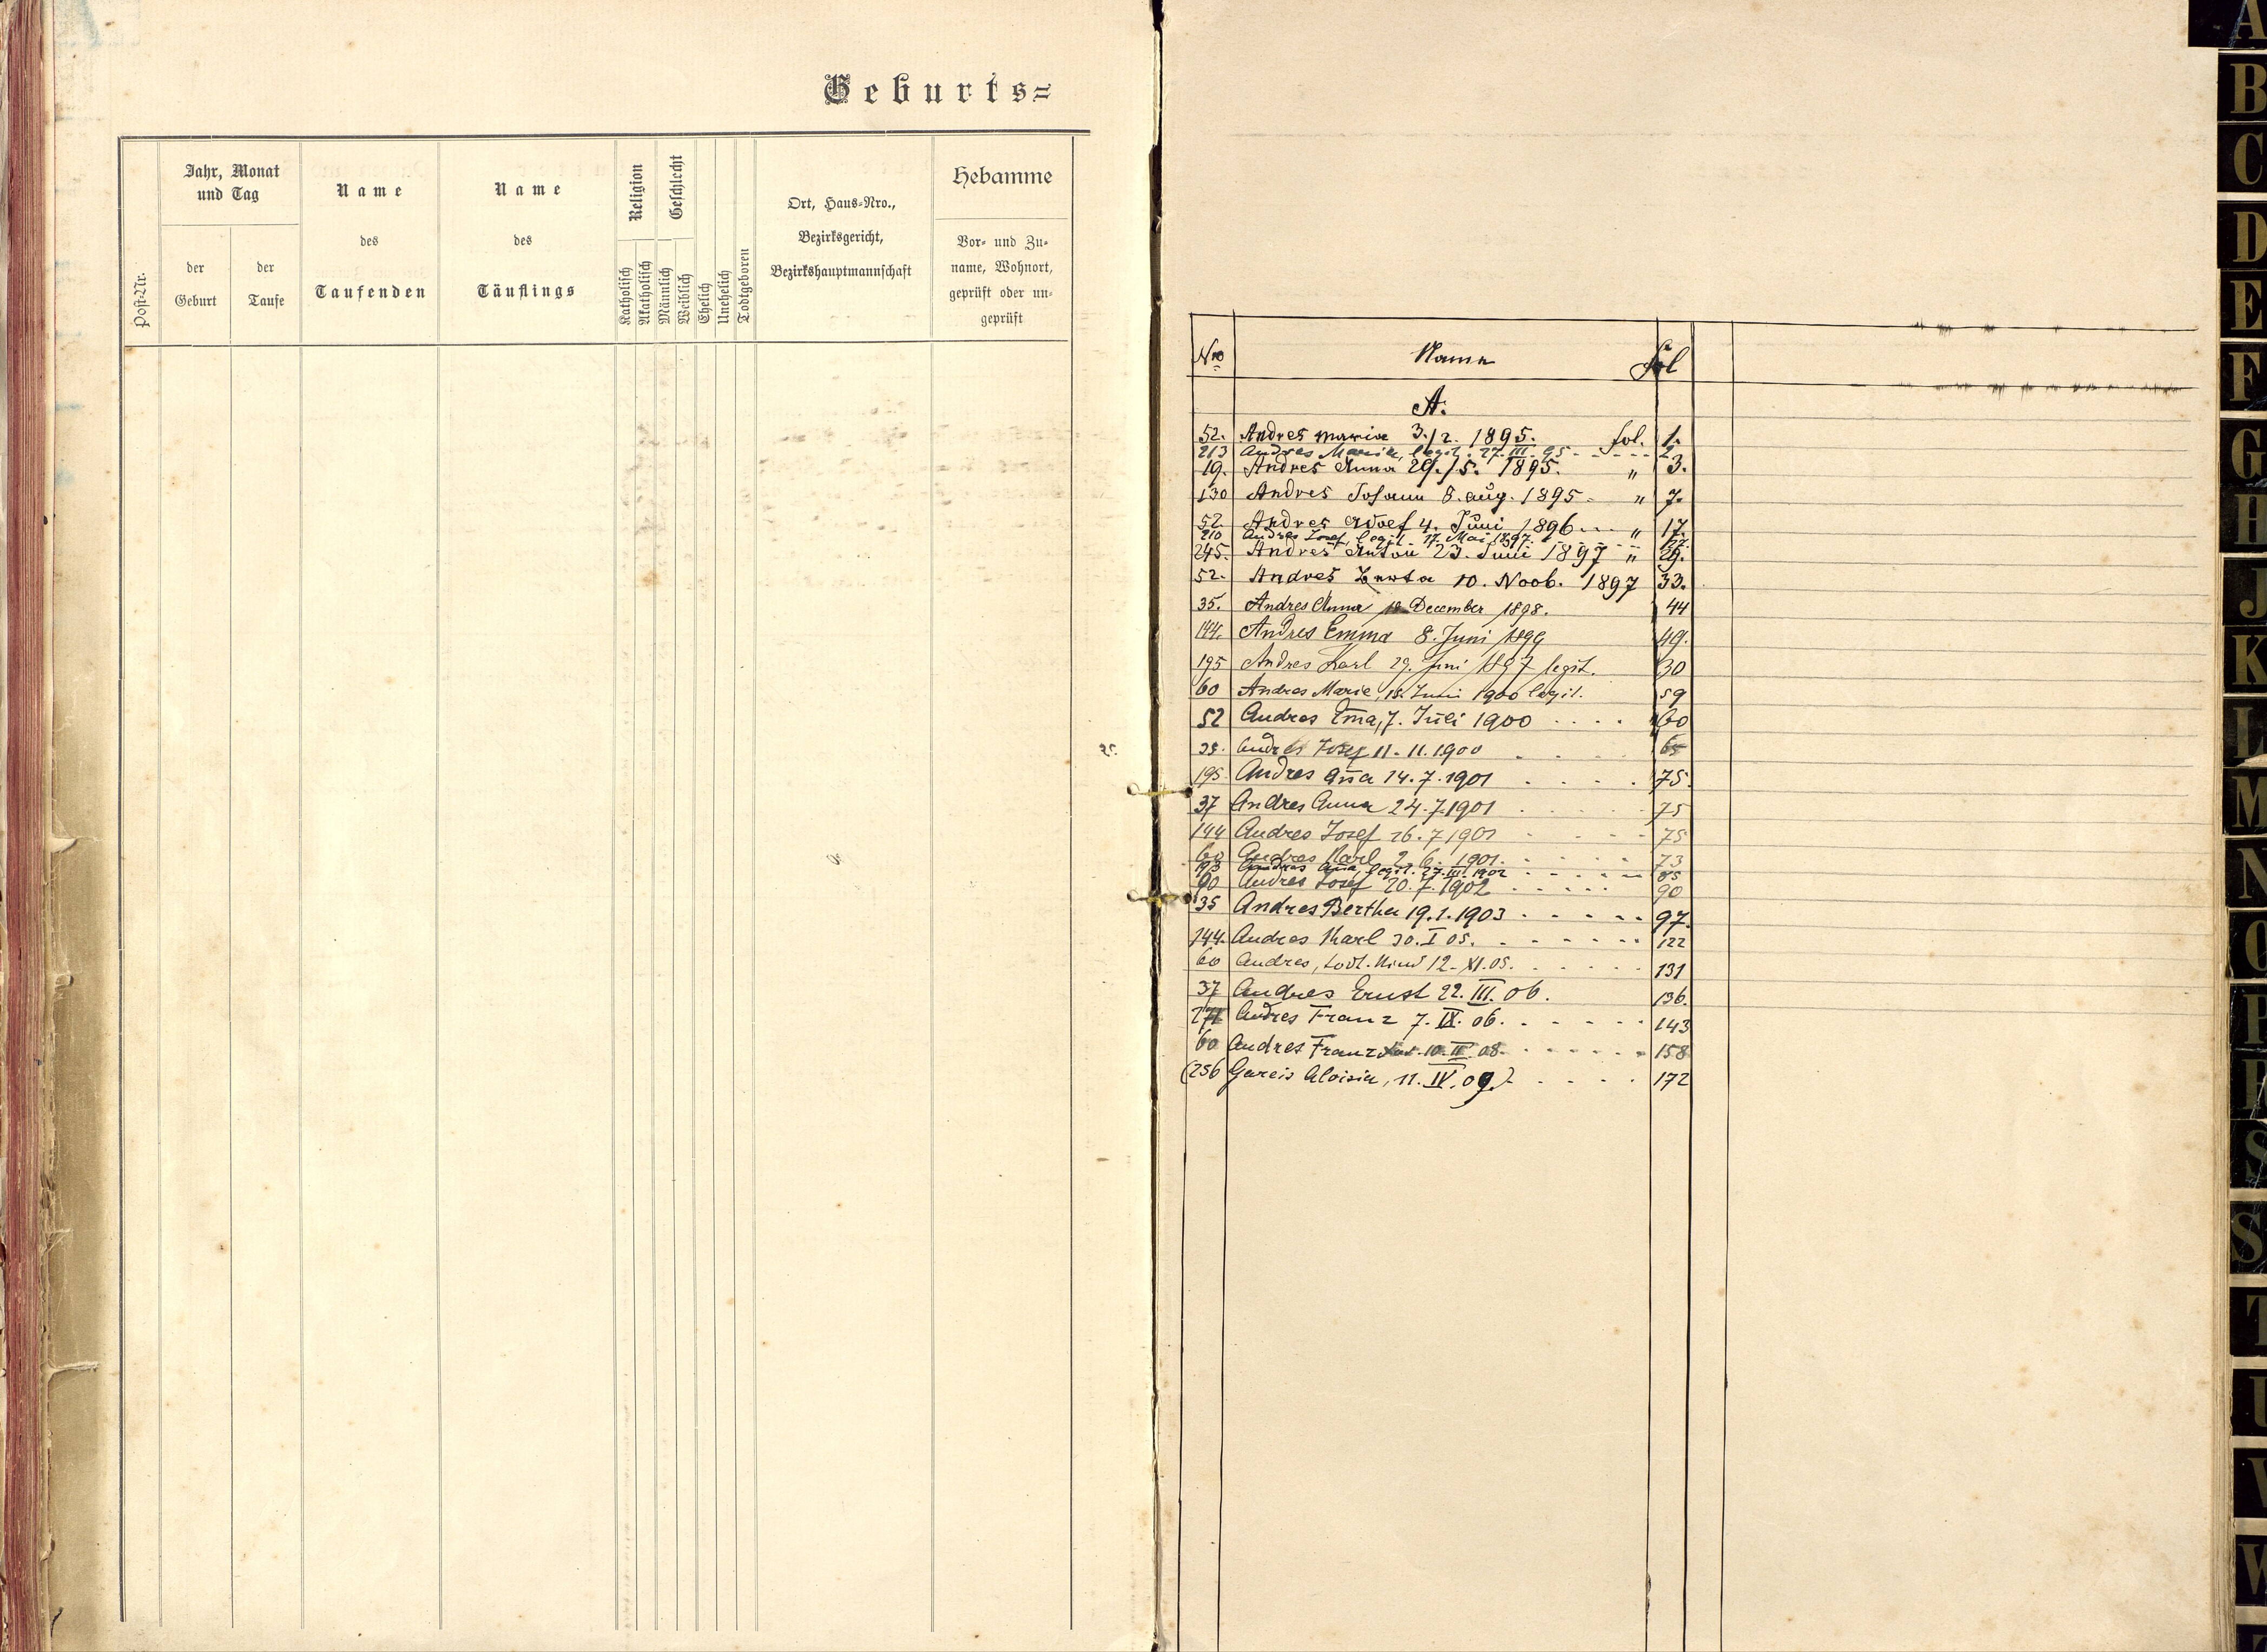 Geburts=
Post-Nr.
Jahr, Monat
und Tag
der
Geburt
der
Taufe
Name
des
Taufenden
Name
des
Täuflings
Religion
Katholisch
Akatholisch
Geschlecht
Männlich
Weiblich
Ehelich
Unehelich
Todtgeboren
Ort, Haus-Nro.,
Bezirksgericht,
Bezirkshauptmannschaft
Hebamme
Vor- und Zu-
name, Wohnort,
geprüft oder un-
geprüft
Nro Name Fol
A.
52. Andres Maria 3./2. 1895. fol. 1.
213 Andres Maria, legit. 27. III. 95 - - - - 2.
19. Andres Anna 29./5. 1895. " 3.
130 Andres Johann 8. Aug. 1895. " 7.
52. Andres Adolf 4. Juni 1896 ... " 17.
210 Andres Josef, legit. 17. Mai 1897. - - - - 27.
245. Andres Anton 23. Juni 1897 " 29.
52. Andres Berta 10. Novb. 1897 33.
35. Andres Anna December 1898. 44
144. Andres Emma 8. Juni 1899 49.
195 Andres Karl 29. Juni 1897 legit. 30
60 Andres Marie, 18. Juni 1900 legit. 59
52 Andres Em̄a, 7. Juli 1900 .... 60
35. Andres Josef 11. 11. 1900 . . . 65
195. Andres An̄a 14. 7. 1901 . . . . 75.
37 Andres Anna 24. 7. 1901 . . . . 75
144 Andres Josef 26. 7 1901 - - - - 75
60 Andres Karl 2. 6. 1901. - - - - 73
Andres An̄a, legit. 27. III. 1902 - - - - 85
90 Andres Josef 20. 7. 1902 ..... 90
35 Andres Bertha 19. 1. 1903 - - - - - 97.
144. Andres Karl 30. I 05. - - - - - - 122
60 Andres, todt. Kind 12. XI. 05. - - - - - 131
37 Andres Ernst 22. III. 06. 136.
Andres Franz 7. IX. 06. - - - - - 143
60 Andres Franziska 10. II. 08. - - - - - - 158
(256 Gareis Aloisia, 11. IV. 09.) - - - - 172
A
B
C
D
E
F
G
H
J
K
L
M
N
O
P
R
S
S
T
U
V
W